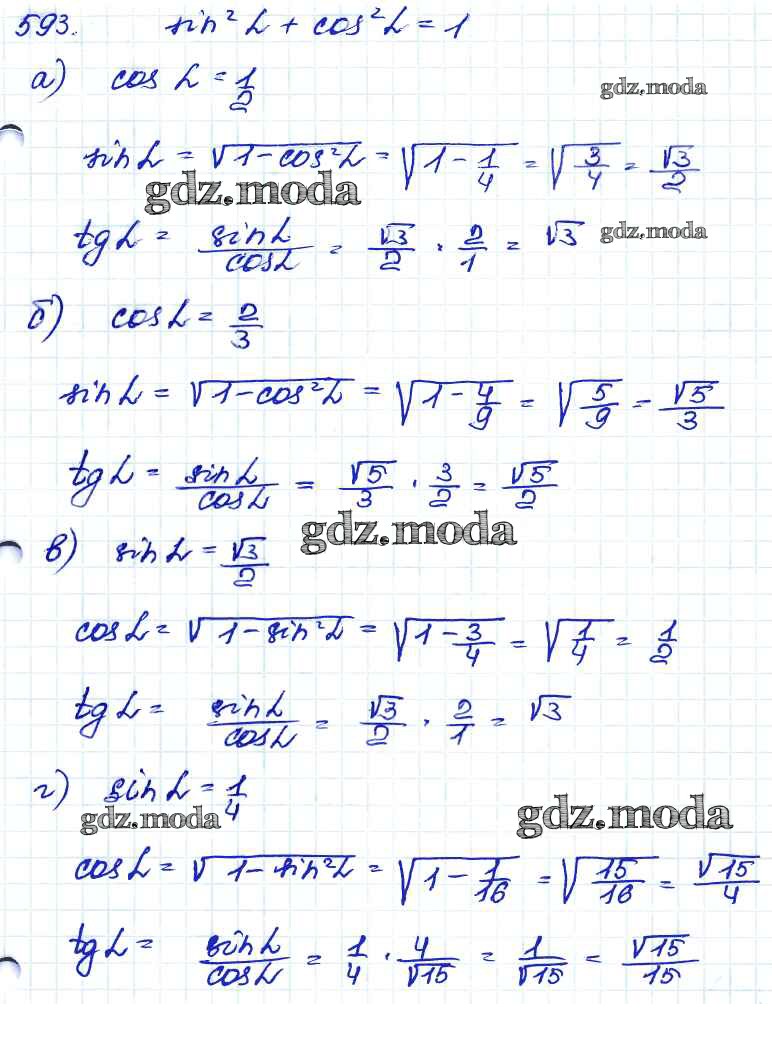 593. sin² α + cos² α = 1
а) cos α = 1/2
gdz.moda
sin α = √(1 - cos² α) = √(1 - 1/4) = √(3/4) = √3/2
gdz.moda
tg α = sin α/cos α = √3/2 · 2/1 = √3
gdz.moda
б) cos α = 2/3
sin α = √(1 - cos² α) = √(1 - 4/9) = √(5/9) = √5/3
tg α = sin α/cos α = √5/3 · 3/2 = √5/2
gdz.moda
в) sin α = √3/2
cos α = √(1 - sin² α) = √(1 - 3/4) = √(1/4) = 1/2
tg α = sin α/cos α = √3/2 · 2/1 = √3
г) sin α = 1/4
gdz.moda
gdz.moda
cos α = √(1 - sin² α) = √(1 - 1/16) = √(15/16) = √15/4
tg α = sin α/cos α = 1/4 · 4/√15 = 1/√15 = √15/15